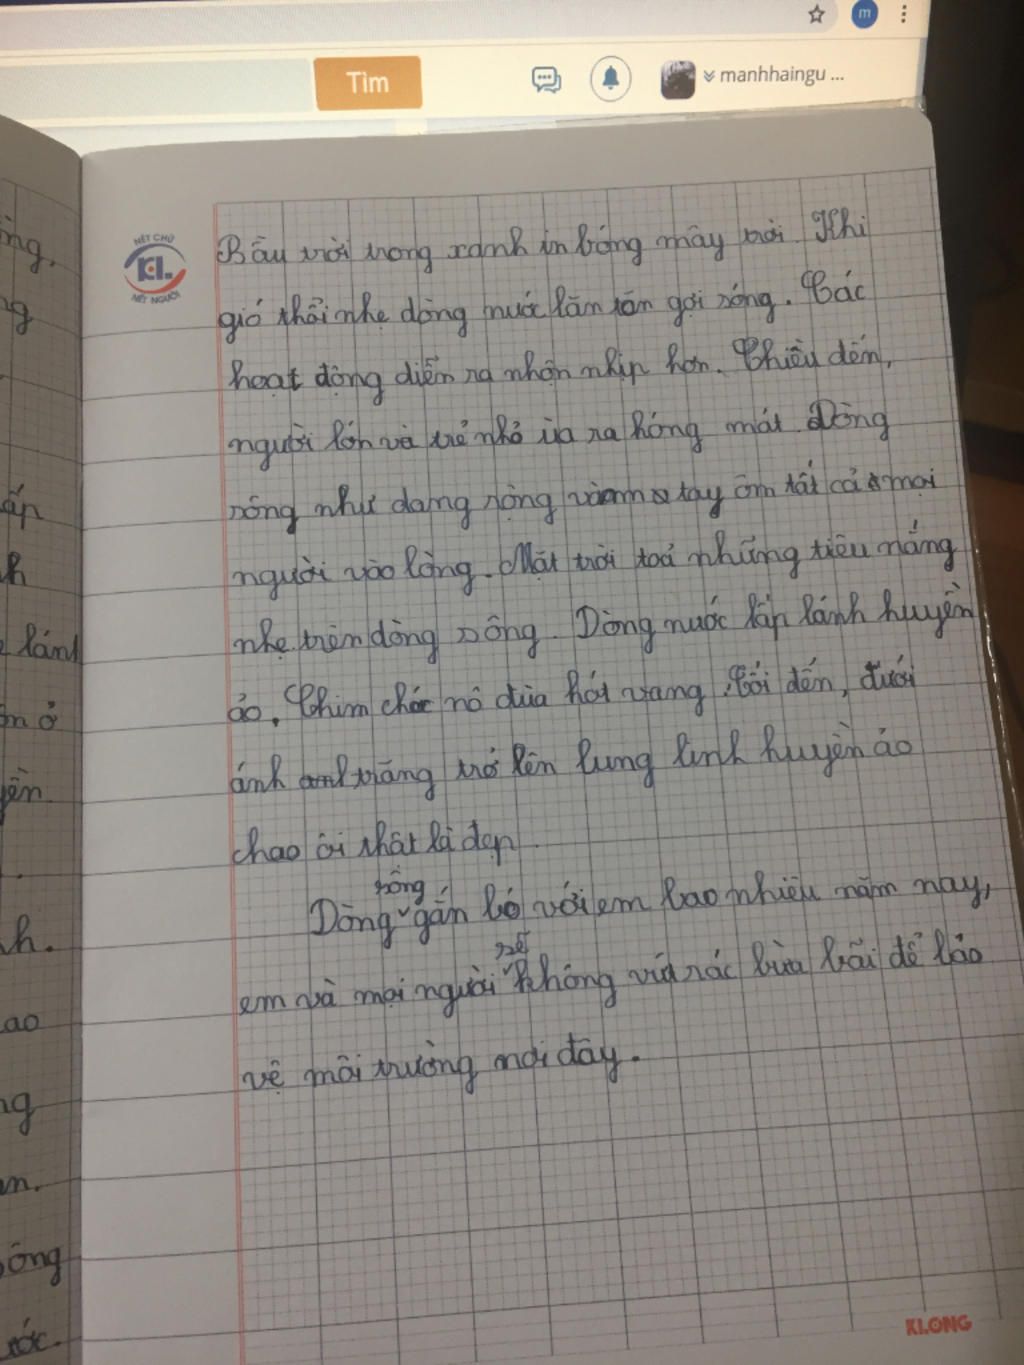 m
Tìm
manhhaingu ...
NÉT CHỮ
KL.
NÉT NGƯỜI
Bầu trời trong xanh in bóng mây trời. Khi
gió thổi nhẹ dòng nước lăn tăn gợi sóng. Các
hoạt động diễn ra nhộn nhịp hơn. Chiều đến,
người lớn và trẻ nhỏ ùa ra hóng mát. Dòng
sông như dang rộng vòng tay ôm tất cả mọi
người vào lòng. Mặt trời toả những tiêu nắng
nhẹ trên dòng sông. Dòng nước lấp lánh huyền
ảo. Chim chóc nô đùa hót vang. Tối đến, dưới
ánh trăng trở lên lung linh huyền ảo
chao ôi thật là đẹp.
Dòng sông gắn bó với em bao nhiêu năm nay,
em và mọi người sẽ không vứt rác bừa bãi để bảo
vệ môi trường nơi đây.
ng.
ng
ấp
h
lánh
ở
yền
h.
ao
ng
m.
ông
ước.
KLONG